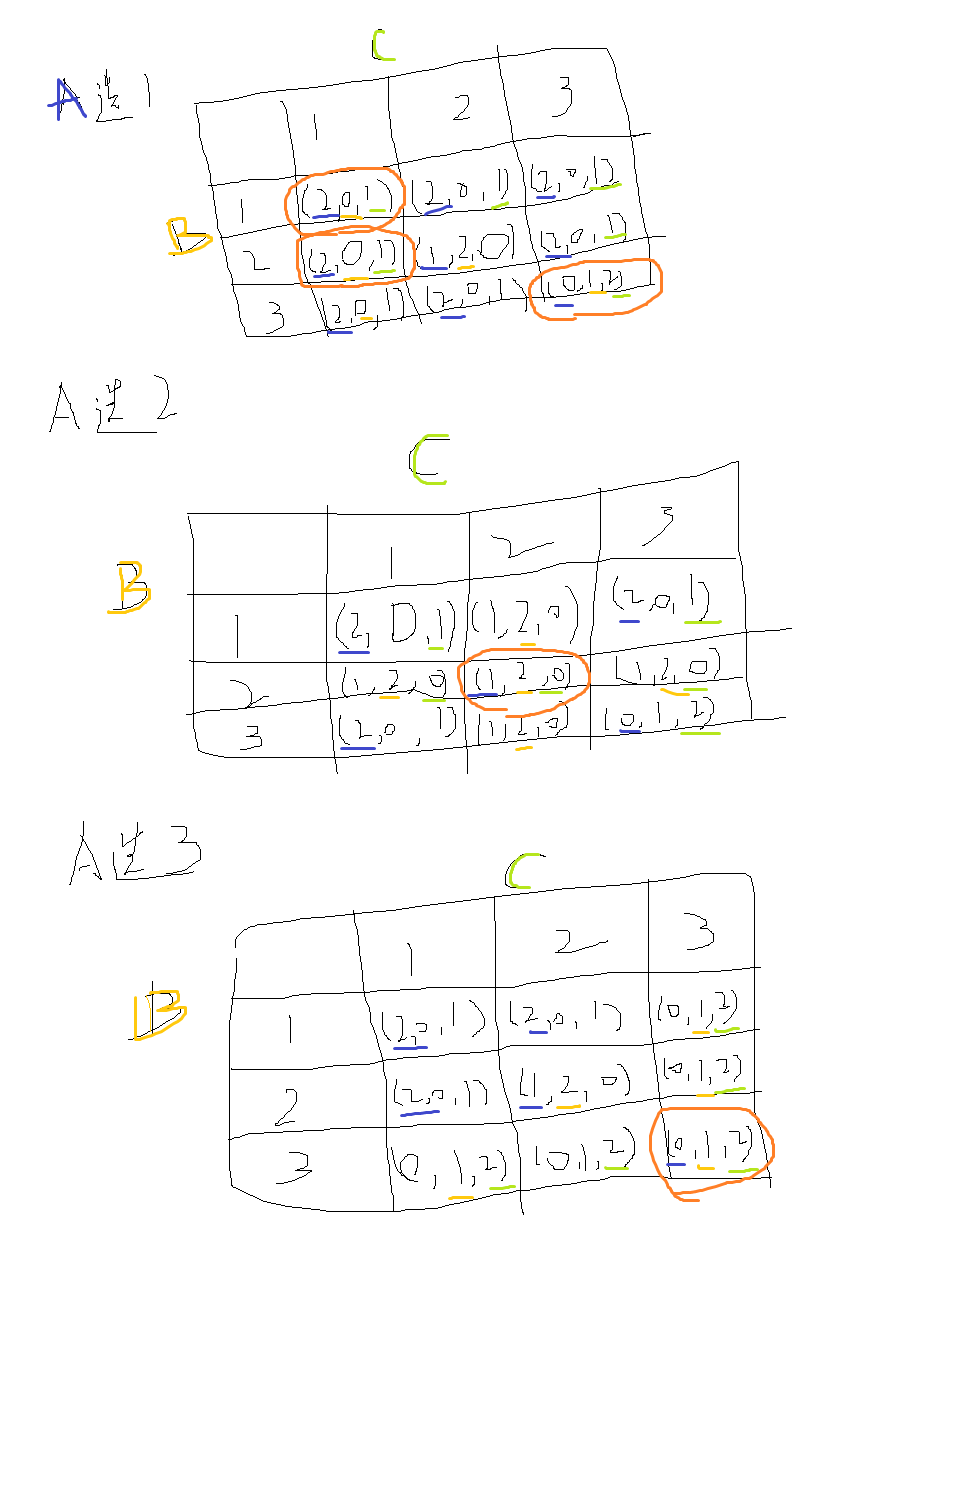 C
A选1
1 2 3
1 (2,0,1) (2,0,1) (2,0,1)
B
2 (2,0,1) (1,2,0) (2,0,1)
3 (2,0,1) (2,0,1) (0,1,2)
A选2
C
1 2 3
B
1 (2,0,1) (1,2,0) (2,0,1)
2 (1,2,0) (1,2,0) (1,2,0)
3 (2,0,1) (1,2,0) (0,1,2)
A选3
C
1 2 3
B
1 (2,0,1) (2,0,1) (0,1,2)
2 (2,0,1) (1,2,0) (0,1,2)
3 (0,1,2) (0,1,2) (0,1,2)